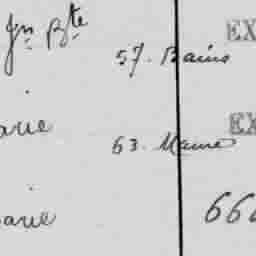 Jn Bte
57. Bains EX
arie
63. Maure EX
arie 66